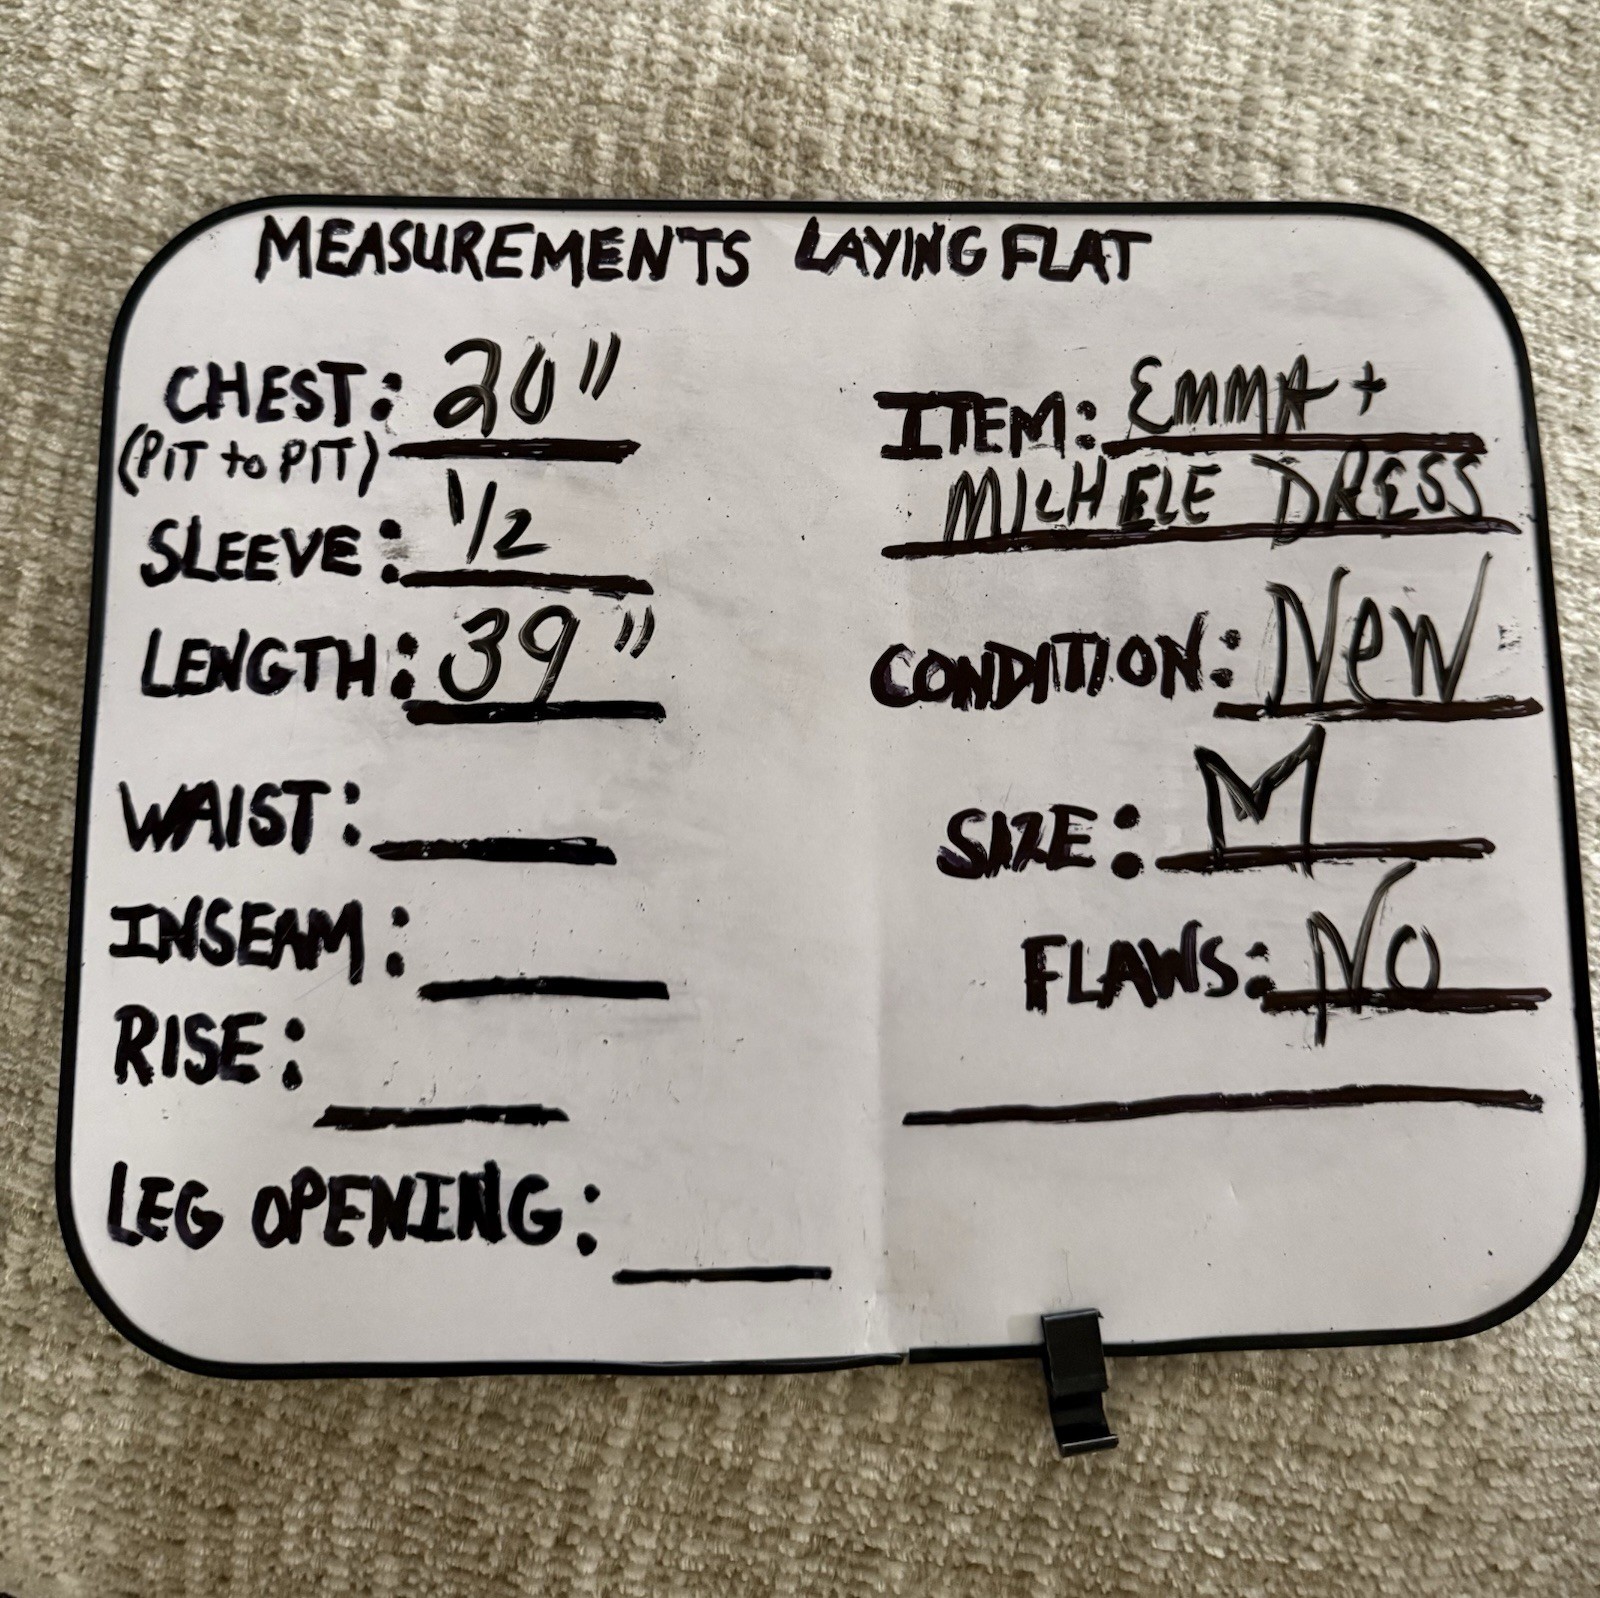 MEASUREMENTS LAYING FLAT
CHEST: 20"
(PIT to PIT)
SLEEVE: 1/2
LENGTH: 39"
WAIST:
INSEAM:
RISE:
LEG OPENING:
ITEM: EMMA +
MICHELE DRESS
CONDITION: New
SIZE: M
FLAWS: NO